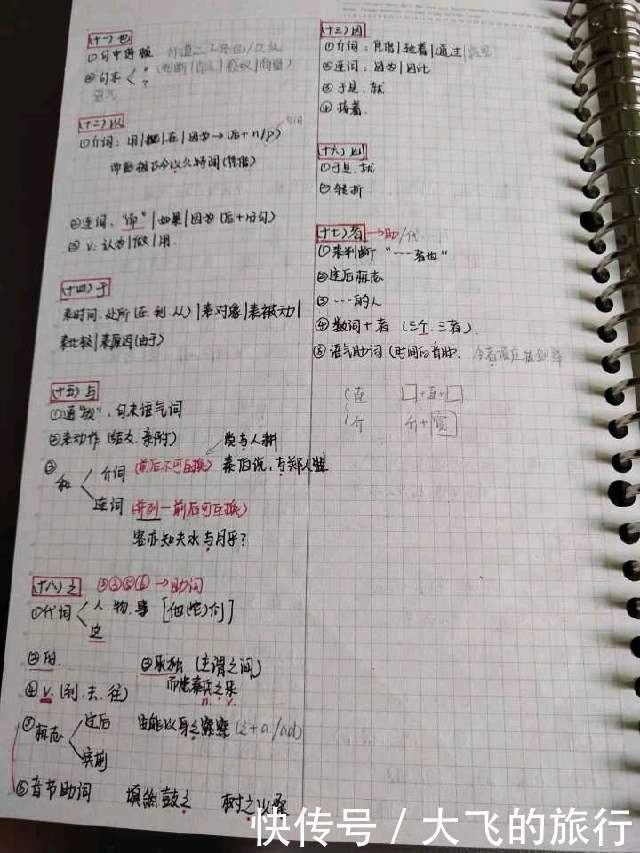 (十一)也
①句中停顿
②句末
语气
(十二)以
①介词：用|把|在|因为→后+n/p
②连词："而"|如果|因为(后+分句)
③v.认为|做|用
(十四)于
表时间、处所(在、到、从)|表对象|表被动|
表比较|表原因(由于)
(十五)与
①通"欤"，句末语气词
②表动作(结交、亲附)
③和
介词(前后不可互换)
连词(并列一前后可互换)
客亦知夫水与月乎？
(十八)之 →助词
①代词
人、物、事[他(它)们]
这
②的
③取独(主谓之间)
④v.(到、去、往)
⑤标志
定后
宾前
⑥音节助词 填然鼓之
(十三)因
①介词：凭借|趁着|通过
②连词：因为|因此
③于是、就
④接着
(十六)则
①于是、就
②转折
(十七)者→助/代
①表判断"……者也"
②定后标志
③……的人
④数词+者(三个、三者)
⑤语气助词
快传号/大飞的旅行